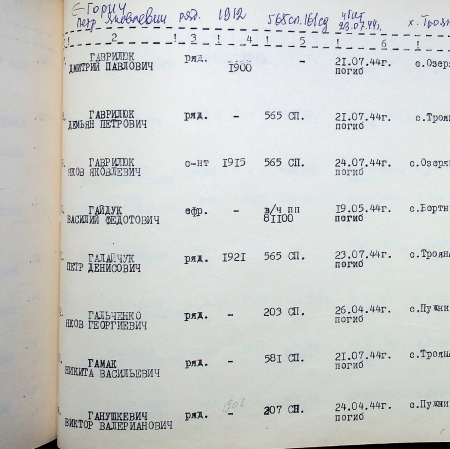 Горич
петр Яковлевич ряд. 1912 565сп.161сд 23.07.44г. х.Троян
1 2 1 3 1 4 1 5 1 6
ГАВРИЛЮК ряд. 21.07.44г. с.Озеря
ДМИТРИЙ ПАВЛОВИЧ 1900 погиб
ГАВРИЛЮК ряд. - 565 СП. 21.07.44г. с.Троян
ДЕМЬЯН ПЕТРОВИЧ погиб
ГАВРИЛЮК с-нт 1915 565 СП. 24.07.44г. с.Озерян
ЯКОВ ЯКОВЛЕВИЧ погиб
ГАЙДУК ефр. - в/ч пп 19.05.44г. с.Бортн
ВАСИЛИЙ ФЕДОТОВИЧ 61100 погиб
ГАЛАЙЧУК ряд. 1921 565 СП. 23.07.44г. с.Троян
ПЕТР ДЕНИСОВИЧ погиб
ГАЛЬЧЕНКО ряд. - 203 СП. 26.04.44г. с.Пужни
ЯКОВ ГЕОРГИЕВИЧ погиб
ГАМАК ряд. - 581 СП. 21.07.44г. с.Троян
НИКИТА ВАСИЛЬЕВИЧ погиб
ГАНУШКЕВИЧ ряд. - 207 СП. 24.04.44г. с.Пужни
ВИКТОР ВАЛЕРИАНОВИЧ погиб